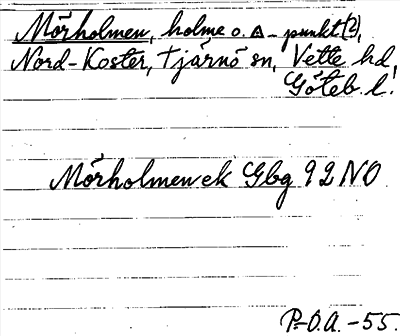 Mörholmen, holme o. △-punkt (2),
Nord-Koster, Tjärnö sn, Vette hd,
Göteb. l.
Mörholmen ek Gbg 92 NO
P.-O.A. -55.